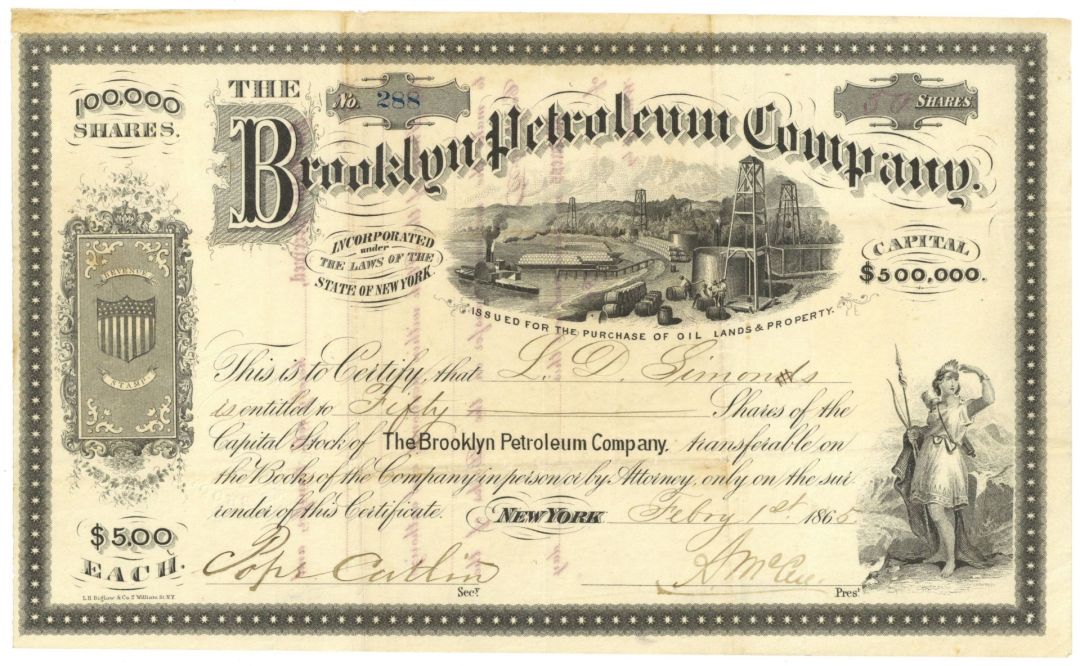 100,000
SHARES.
THE
No. 288
50 SHARES
Brooklyn Petroleum Company.
INCORPORATED
under
THE LAWS OF THE
STATE OF NEW YORK.
CAPITAL
$500,000.
ISSUED FOR THE PURCHASE OF OIL LANDS & PROPERTY.
REVENUE
STAMP
This is to Certify, that L. D. Simonds
is entitled to Fifty Shares of the
Capital Stock of The Brooklyn Petroleum Company. transferable on
the Books of the Company in person or by Attorney, only on the sur
render of this Certificate. NEW YORK Febry 1st. 1865.
$5.00
EACH.
Pope Catlin
Secy.
Prest
L.H. Biglow & Co. 2 William St. N.Y.